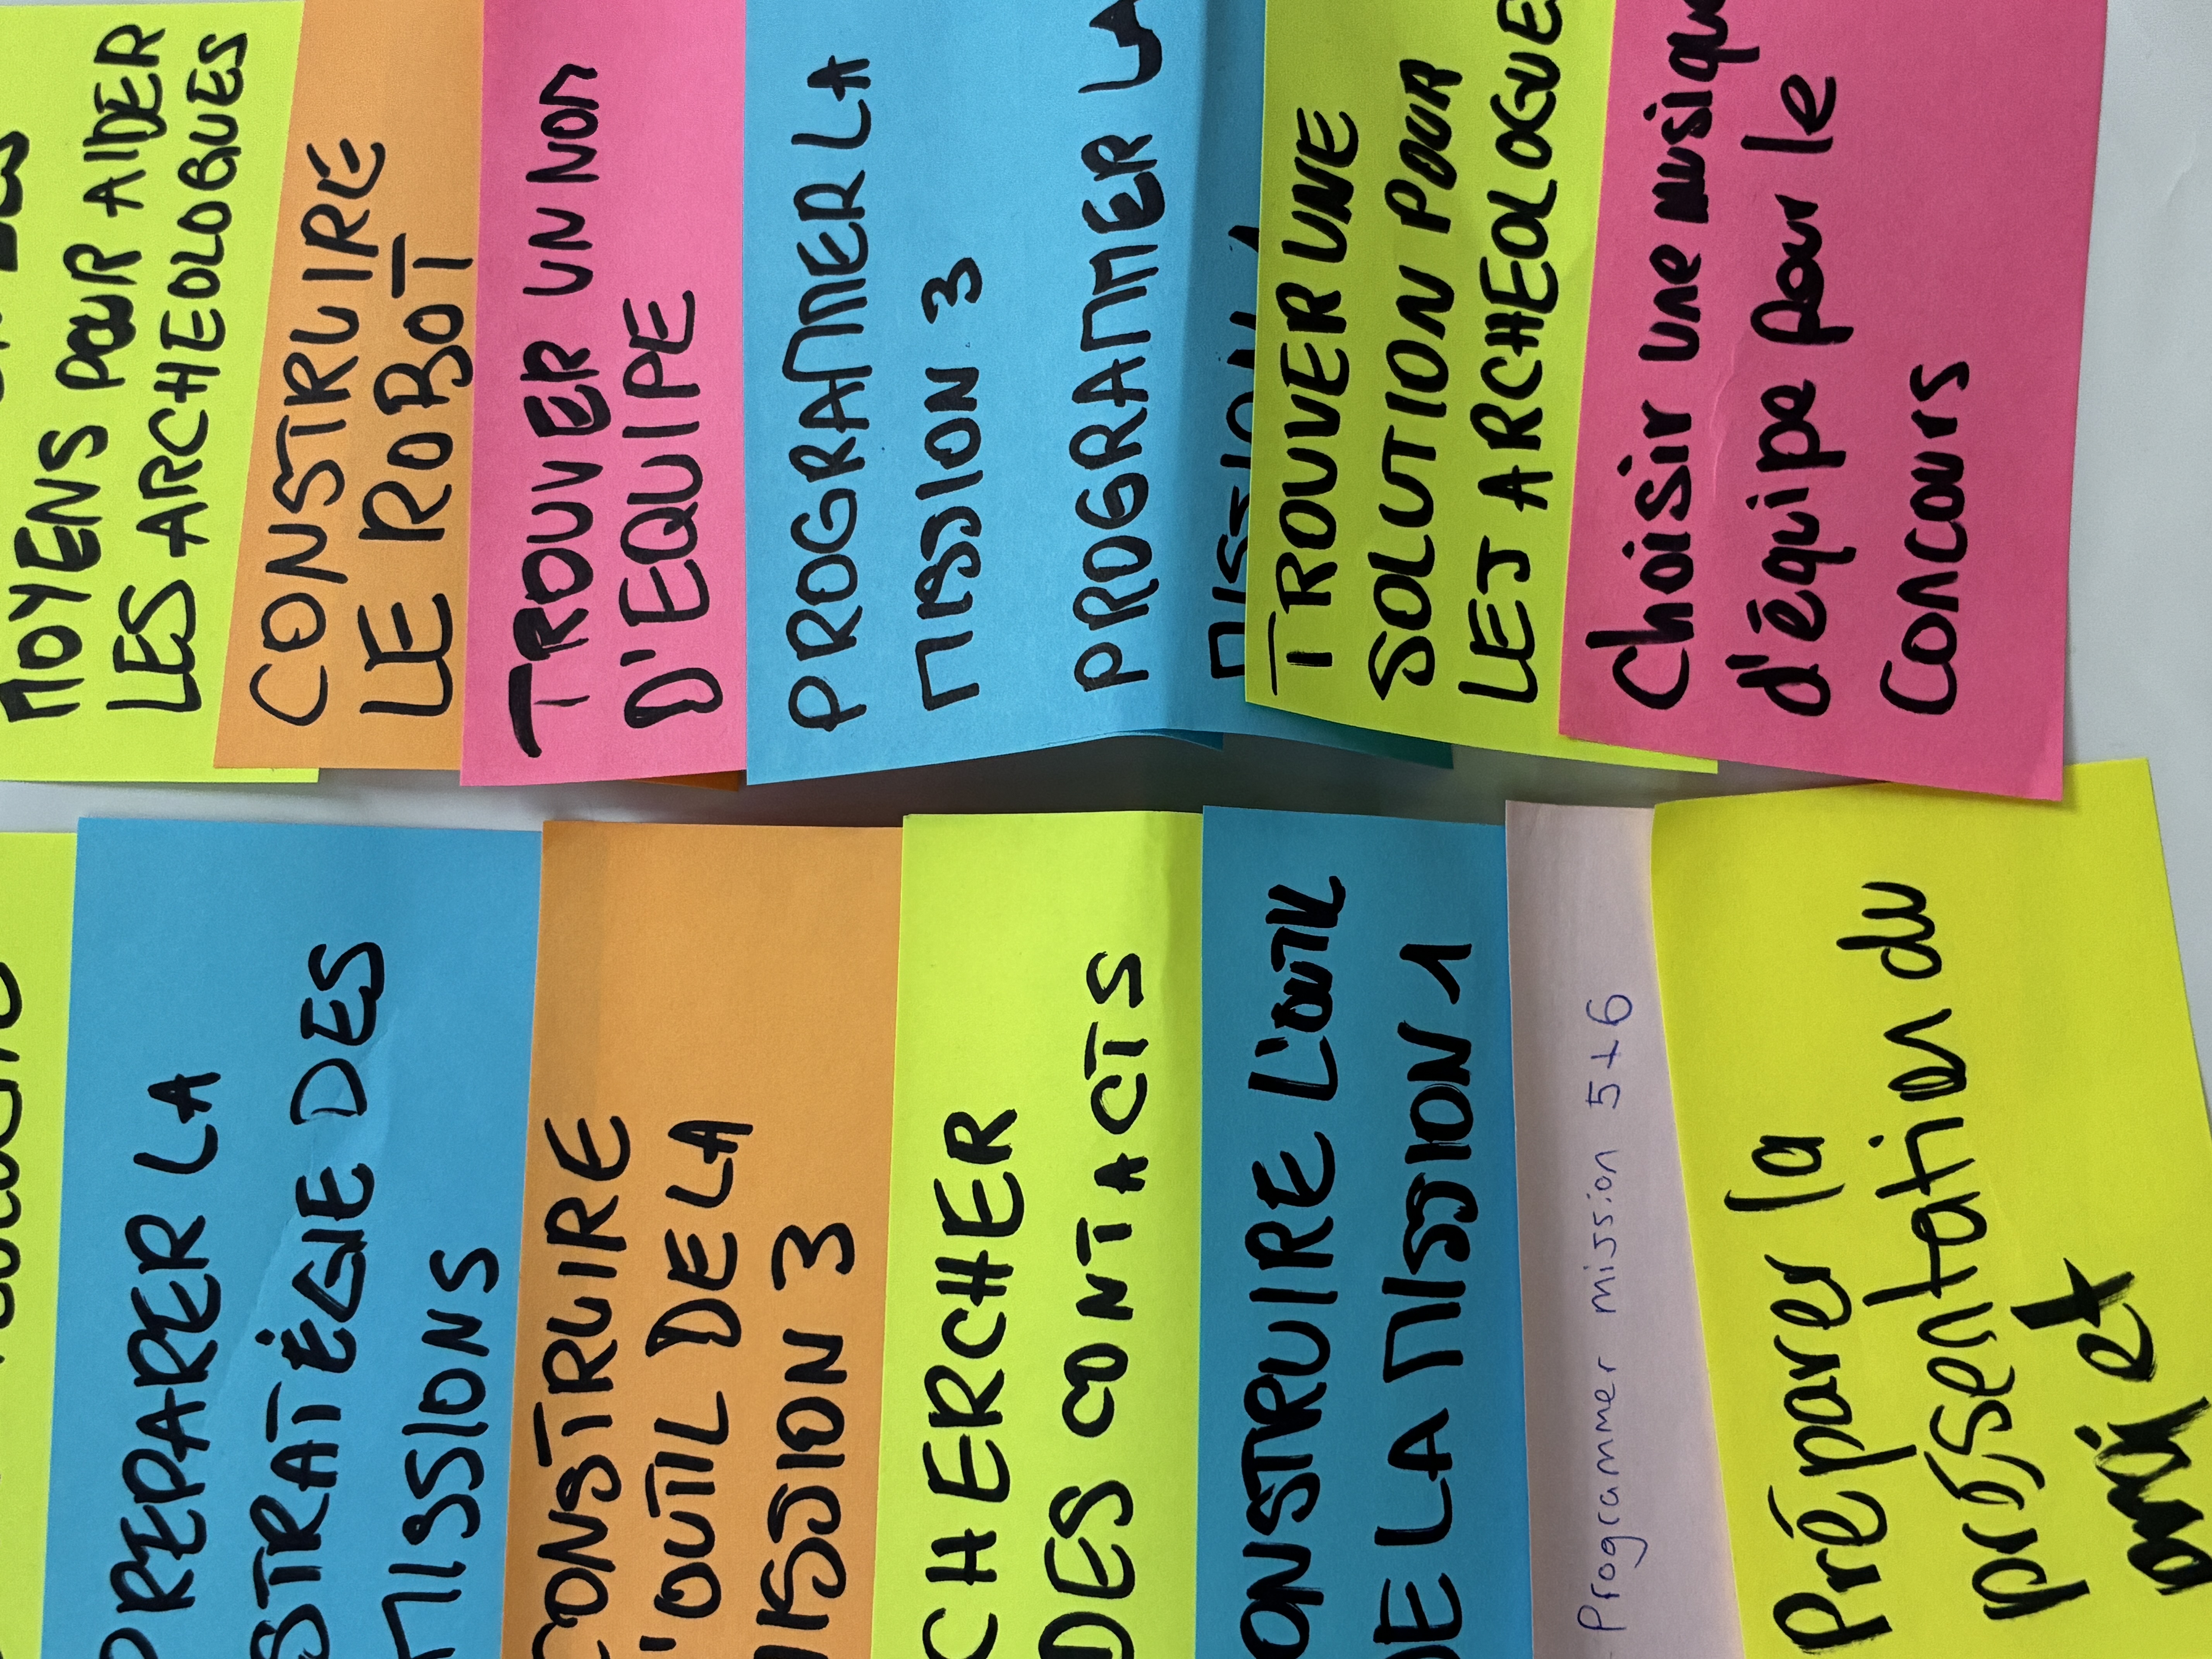 MOYENS POUR AIDER
LES ARCHEOLOGUES
CONSTRUIRE
LE ROBOT
TROUVER UN NOM
D'EQUIPE
PROGRAMER LA
MISSION 3
PROGRAMMER LA
MISSION
TROUVER UNE
SOLUTION POUR
LES ARCHEOLOGUE
Choisir une musique
d'équipe pour le
Concours
PREPARER LA
STRATÉGIE DES
MISSIONS
CONSTRUIRE
L'OUTIL DE LA
MISSION 3
CHERCHER
DES CONTACTS
CONSTRUIRE L'OUTIL
DE LA MISSION 1
- Programmer mission 5+6
Préparer la
présentation du